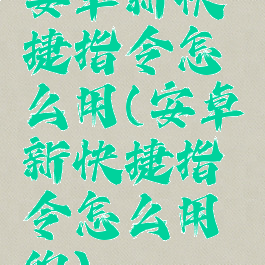 安卓新快
捷指令怎
么用(安卓
新快捷指
令怎么用
的)